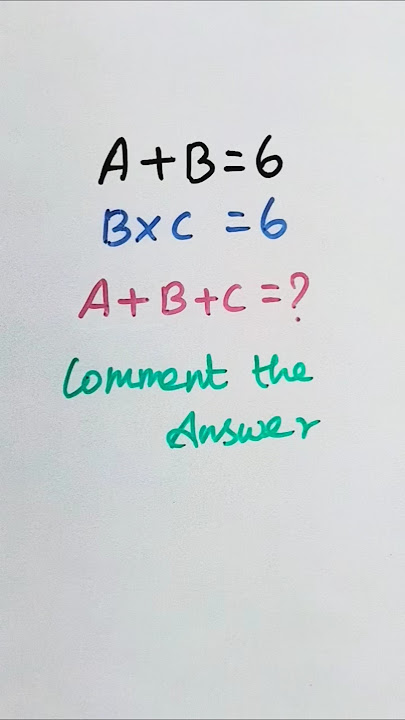 A+B=6
B×C=6
A+B+C=?
Comment the
Answer